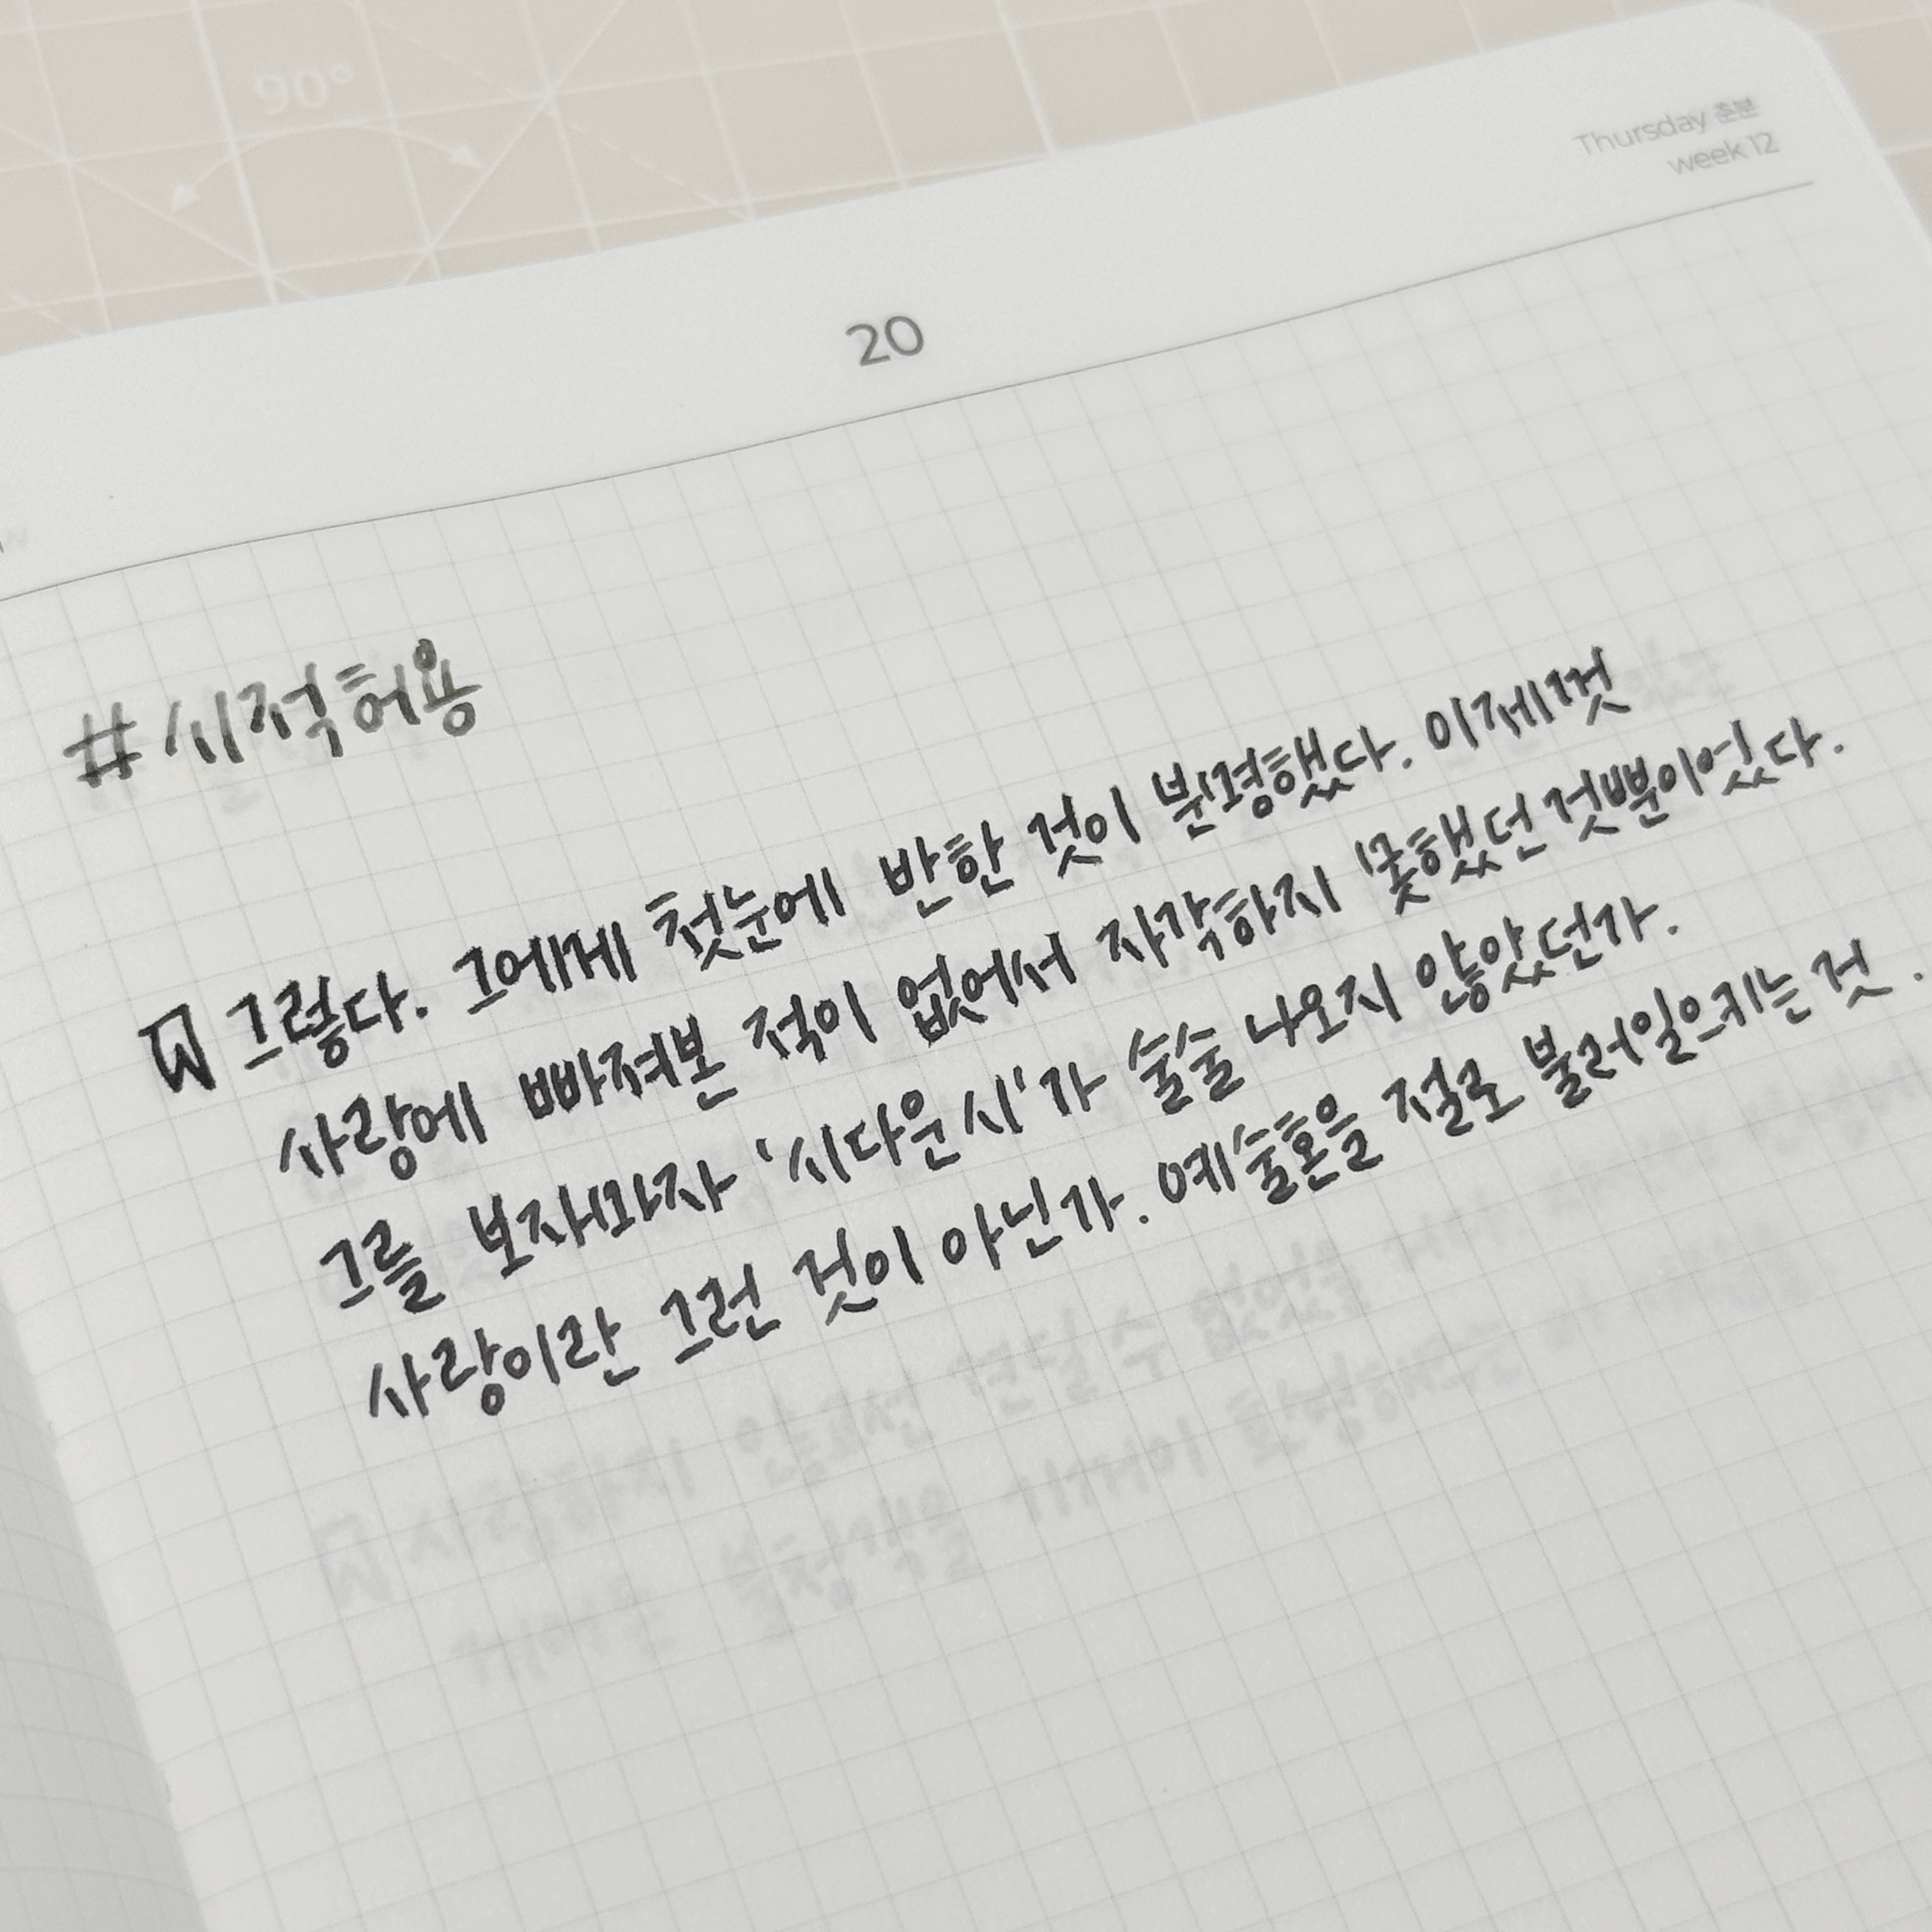 90°
Thursday 춘분
week 12
20
#시적허용
그렇다. 그에게 첫눈에 반한 것이 분명했다. 이제껏
사랑에 빠져본 적이 없어서 자각하지 못했던 것뿐이었다.
그를 보자마자 '시다운 시'가 술술 나오지 않았던가.
사랑이란 그런 것이 아닌가. 예술혼을 절로 불러일으키는 것.